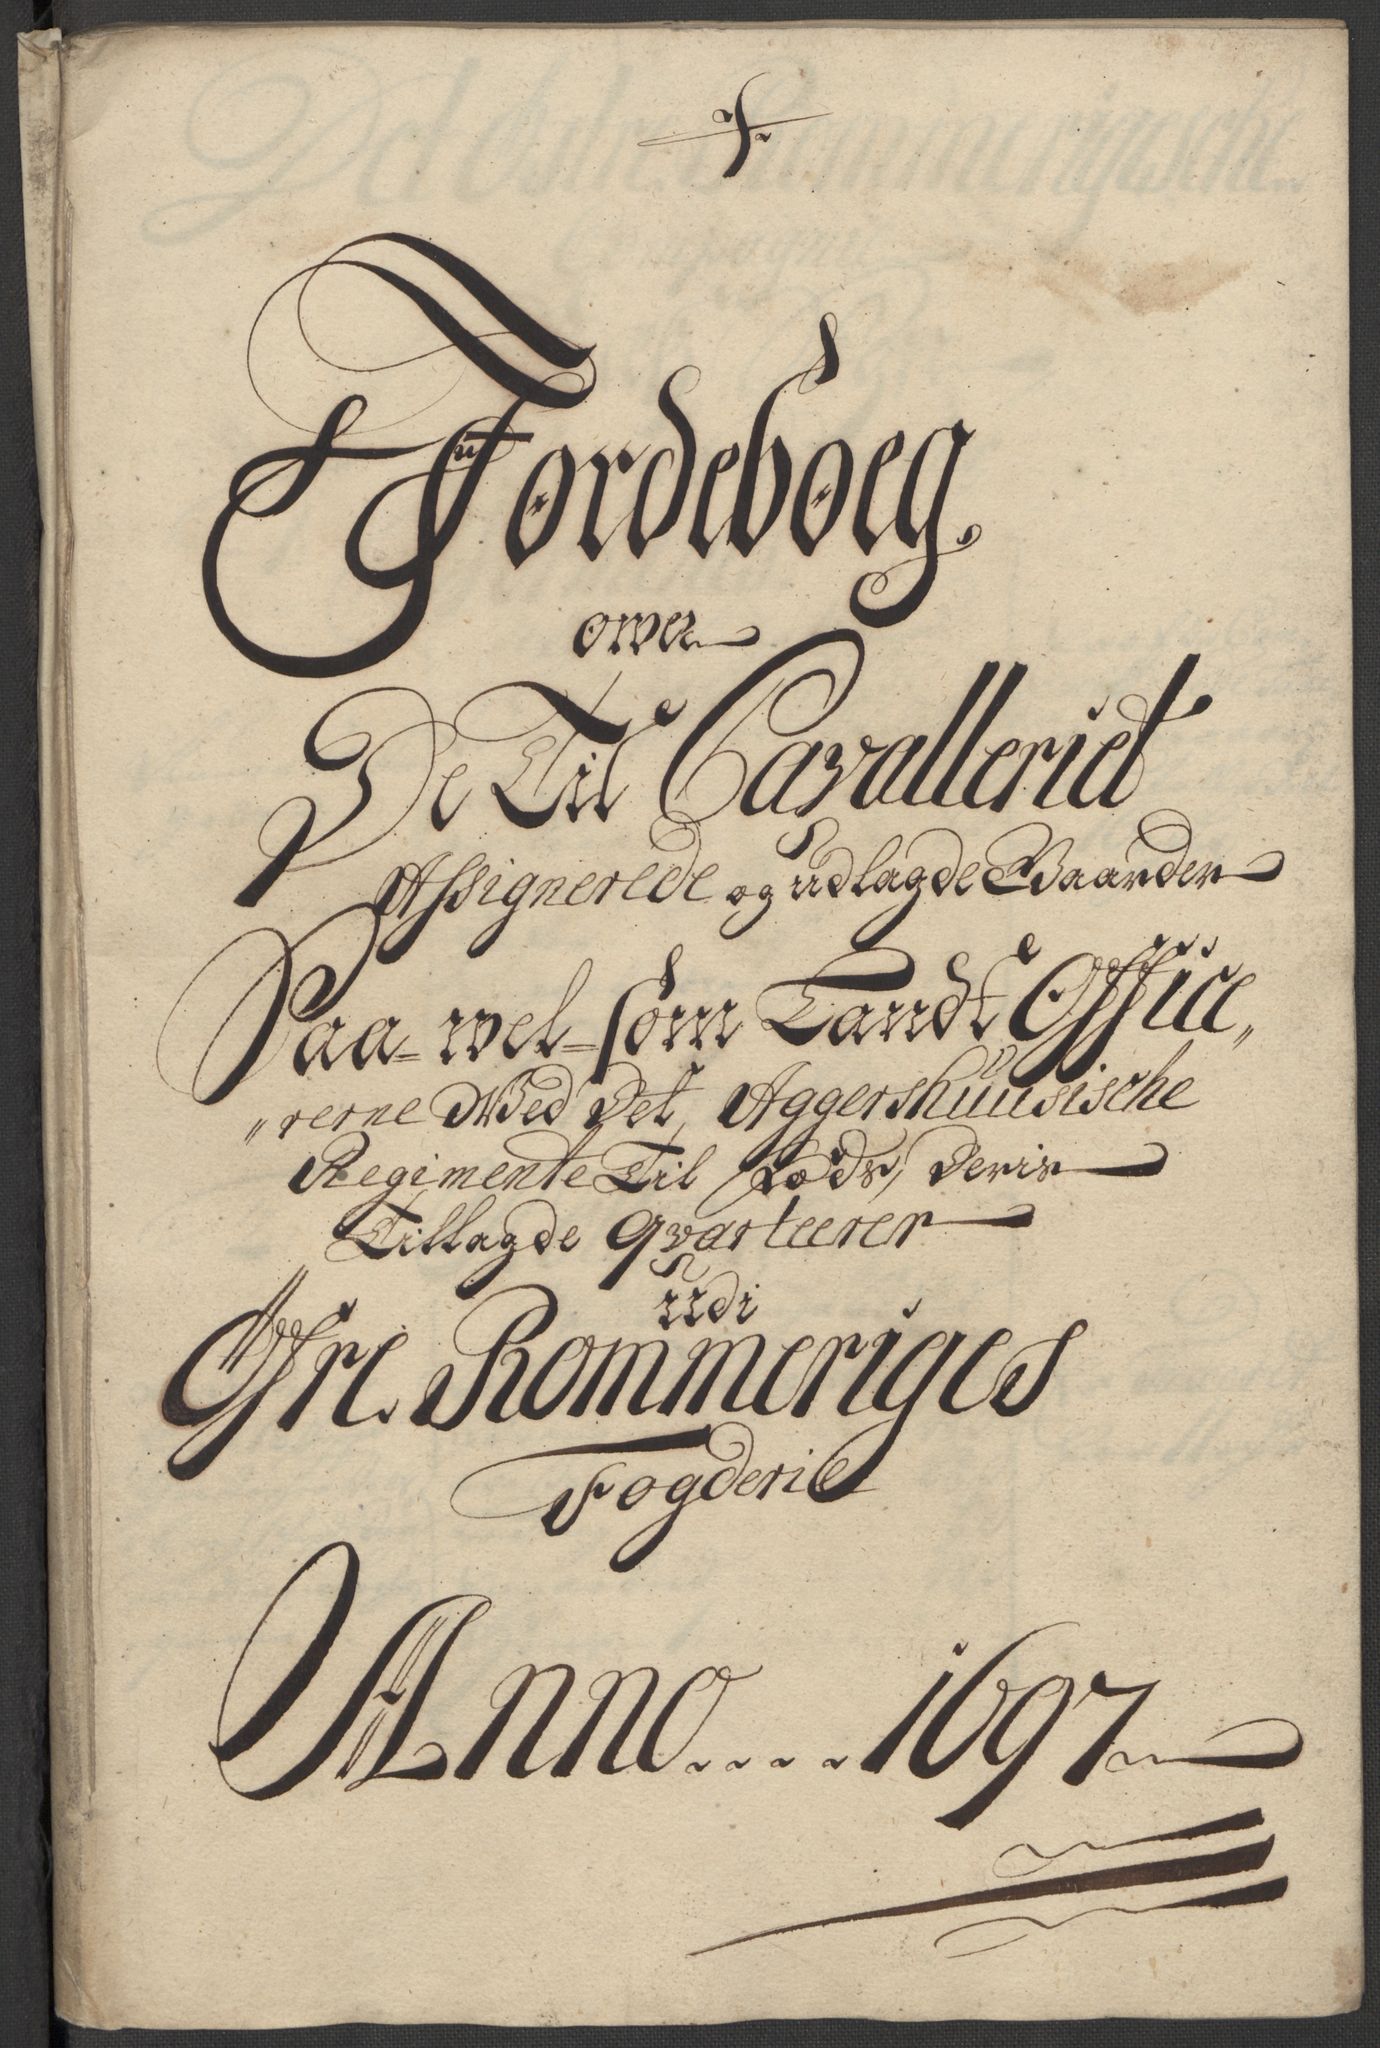 Jordeboeg.
over
De Til Cavalleriet
Assignerede og udlagde Gaarder
Saa-wel-som Landt Office„
„rerne Wed Det, Aggershuusische
Regimente Til Fods, Deris
Tillagde Qvarteerer
udi
Øfre Rommeriges
Fogderie
Anno.... 1697